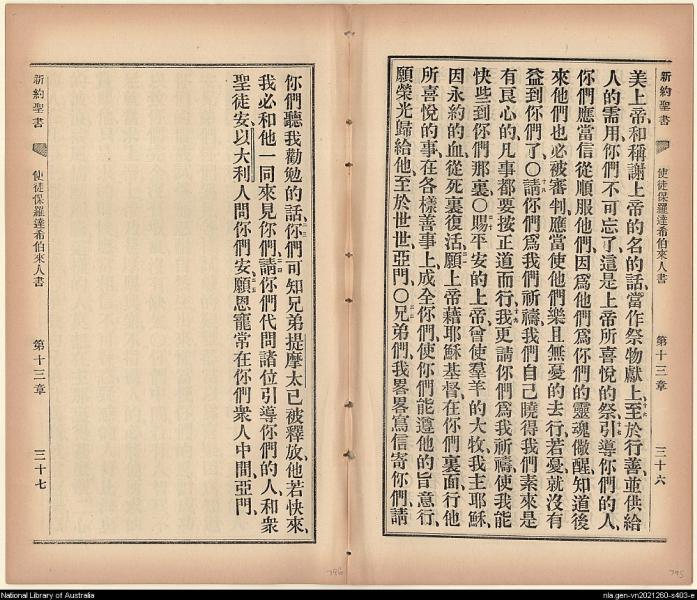 新約聖書 使徒保羅達希伯來人書 第十三章 三十六
美上帝、和稱謝上帝的名的話、當作祭物獻上、十六至於行善、並供給
人的需用、你們不可忘了、這是上帝所喜悅的祭、十七引導你們的人、
你們應當信從順服他們、因爲他們爲你們的靈魂儆醒、知道後
來他們也必被審判、應當使他們樂且無憂的去行、若憂、就沒有
益到你們了、〇十八請你們爲我們祈禱、我們自己曉得我們素來是
有良心的、凡事都要按正道而行、十九我更請你們爲我祈禱、使我能
快些到你們那裏、〇二十賜平安的上帝、曾使羣羊的大牧、我主耶穌、
因永約的血、從死裏復活、二一願上帝藉耶穌基督、在你們裏面行他
所喜悅的事、在各樣善事上、成全你們、使你們能遵他的旨意行、
願榮光歸給他、至於世世、亞門、〇二二兄弟們、我畧畧寫信寄你們、請
你們聽我勸勉的話、二三你們可知兄弟提摩太已被釋放、他若快來、
我必和他一同來見你們、二四請你們代問諸位引導你們的人、和衆
聖徒安、以大利人問你們安、二五願恩寵常在你們衆人中間、亞門、
新約聖書 使徒保羅達希伯來人書 第十三章 三十七
796
795
National Library of Australia
nla.gen-vn2021260-s403-e